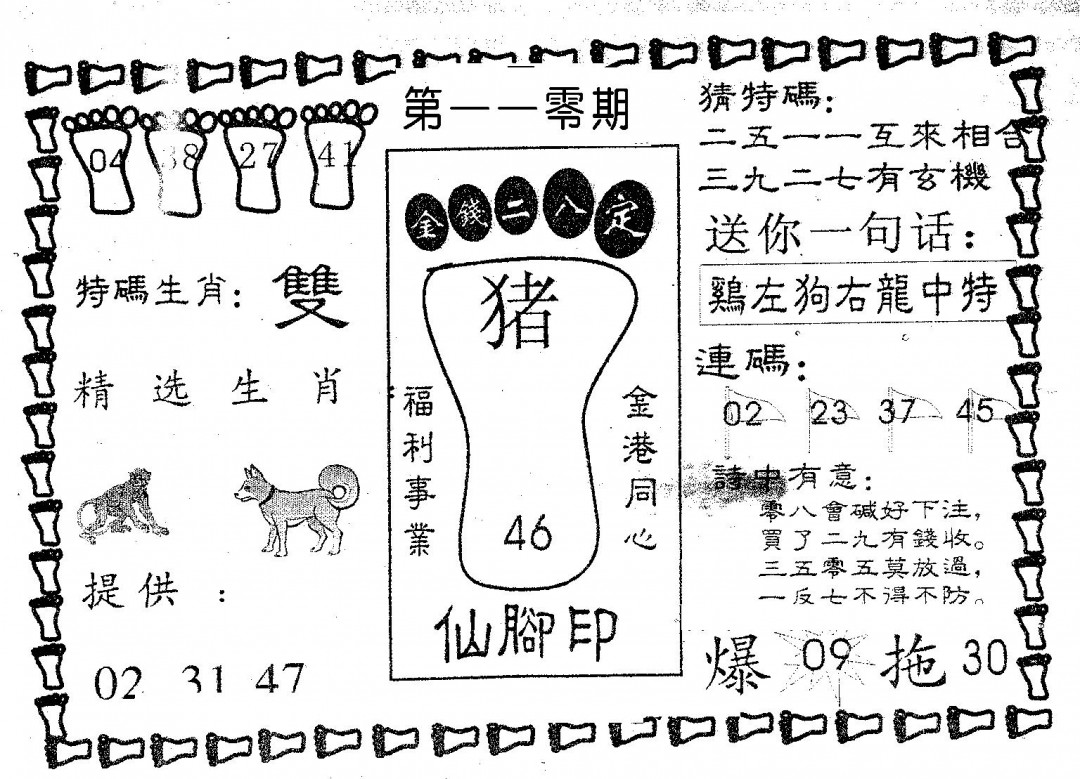 第一一零期
04 38 27 41
特碼生肖：雙
精选生肖
提供：
02 31 47
金錢二八定
猪
福利事業
金港同心
46
仙腳印
猜特碼：
二五一一互來相合
三九二七有玄機
送你一句话：
鷄左狗右龍中特
連碼：
02 23 37 45
詩中有意：
零八會碱好下注，
買了二九有錢收。
三五零五莫放過，
一反七不得不防。
爆 09 拖 30